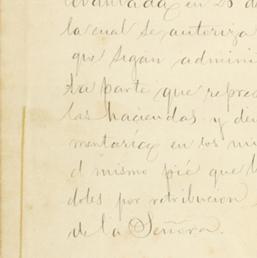 levantada en 28 de
la cual se autoriza
que sigan admini
ta parte que repres
las haciendas y de
mentaria en los mi
el mismo pié que l
doles por retribucion
de la Señora.